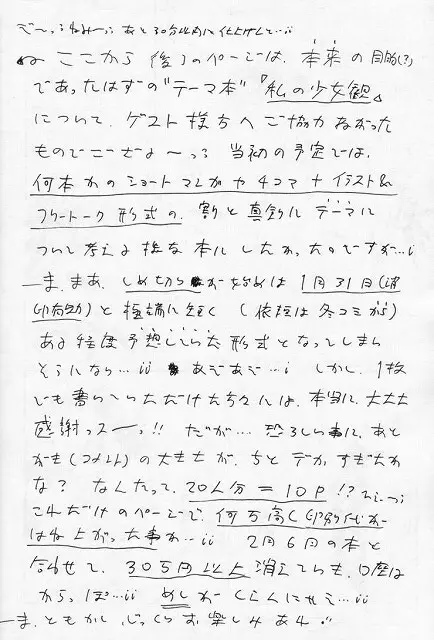 で〜っうわみ〜っ あと30分以内に仕上げんと…ii
ここから後ろのページは、本来の目的(?)
であったはずの"テーマ本"『私の少女観』
について、ゲスト様方へご協力ねがった
ものでございまーっす 当初の予定では、
何本かのショートマンガや4コマ+イラスト&
フリートーク形式の、割と真剣にテーマに
ついて考える様な本にしたかったのですが…i
ま、まあ、しめ切りが始めは1月31日(消
印有効)と極端に短く(依頼は冬コミから)
ある程度予想していた形式となってしまい
そうになら…ii あぞあぞ…i しかし、1枚
でも書いていただけた方々には、本当に、大大大
感謝っスーっ!! だが… 恐ろしい事に、あと
がき(コメント)の大きさが、ちとデカすぎたか
な? なんたって、20人分=10P!?
これだけのページで、何万高く印刷代が
はね上がった事か…ii 2月6日の本と
合わせて、30万円以上消えてらも、口座は
からっぽ…ii めしが くらんにゃえ…ii
ま、ともかく、じっくらお楽しみあれ